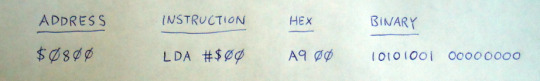 ADDRESS INSTRUCTION HEX BINARY
$0800 LDA #$00 A9 00 10101001 00000000